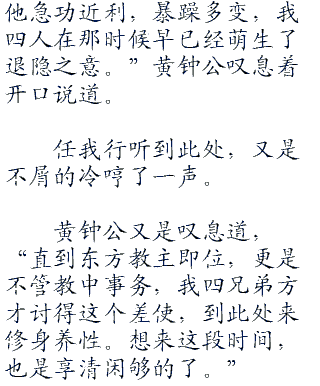 他急功近利，暴躁多变，我
四人在那时候早已经萌生了
退隐之意。”黄钟公叹息着
开口说道。
任我行听到此处，又是
不屑的冷哼了一声。
黄钟公又是叹息道，
“直到东方教主即位，更是
不管教中事务，我四兄弟方
才讨得这个差使，到此处来
修身养性。想来这段时间，
也是享清闲够的了。”